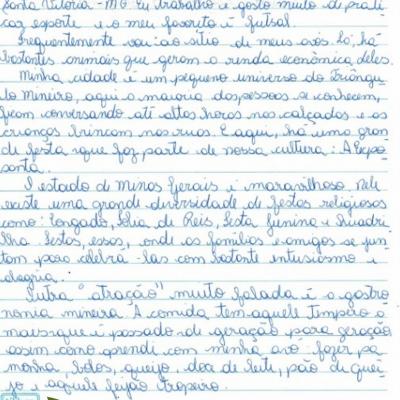 Santa Vitória - MG. Eu trabalho e gosto muito de prati
car esporte e o meu favorito é futsal.
Frequentemente vou ao sítio de meus avós. Lá, há
bastantes animais que geram a renda econômica deles.
Minha cidade é um pequeno universo do Triângu
lo Mineiro, aqui a maioria das pessoas se conhecem,
ficam conversando até altas horas nas calçadas e as
crianças brincam nas ruas. E aqui, há uma gran
de festa que faz parte de nossa cultura: A Expo
santa.
O estado de Minas Gerais é maravilhoso. Nele
existe uma grande diversidade de festas religiosas
como: Congado, Folia de Reis, Festa Junina e Quadri
lha. Festas, essas, onde as famílias e amigos se jun
tam para celebrá-las com bastante entusiasmo e
alegria.
Outra "atração" muito falada é a gastro
nomia mineira. A comida tem aquele tempero a
mais que é passado de geração para geração
assim como aprendi com minha avó fazer pa
monha, bolos, queijo, doce de leite, pão de quei
jo e aquele feijão tropeiro.